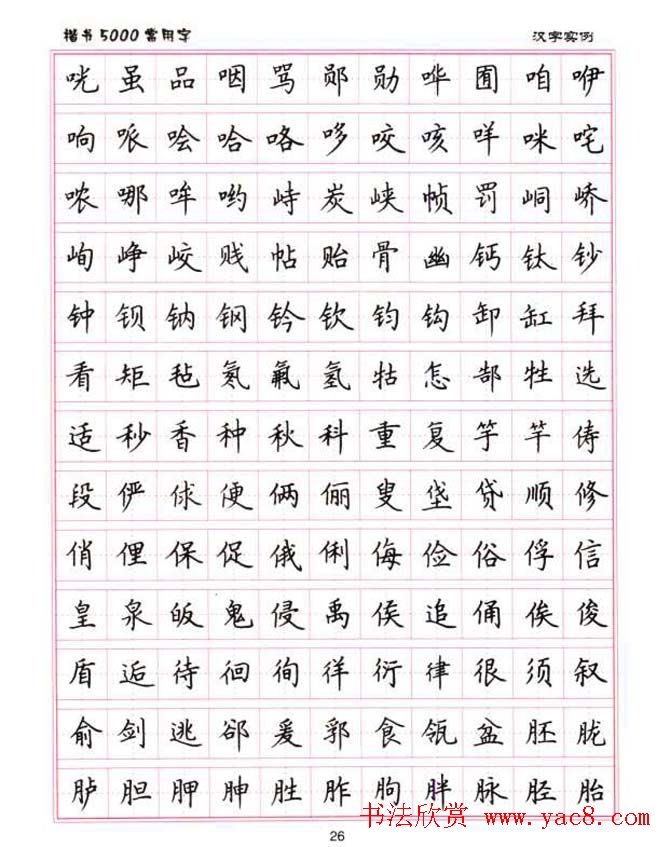 楷书5000常用字 汉字实例
咣虽品咽骂郧勋哗囿咱咿
响哌哙哈咯哆咬咳咩咪咤
哝哪哞哟峙炭峡帧罚峒峤
峋峥峧贱帖贻骨幽钙钛钞
钟钡钠钢钤钦钧钩卸缸拜
看矩毡氡氟氢牯怎郜牲选
适秒香种秋科重复竽竿俦
段俨俅便俩俪叟垡贷顺修
俏俚保促俄俐侮俭俗俘信
皇泉皈鬼侵禹侯追俑俟俊
盾逅待徊徇徉衍律很须叙
俞剑逃郤爰郛食瓴盆胚胧
胪胆胛胂胜胙朐胖脉胫胎
书法欣赏 www.yac8.com
26